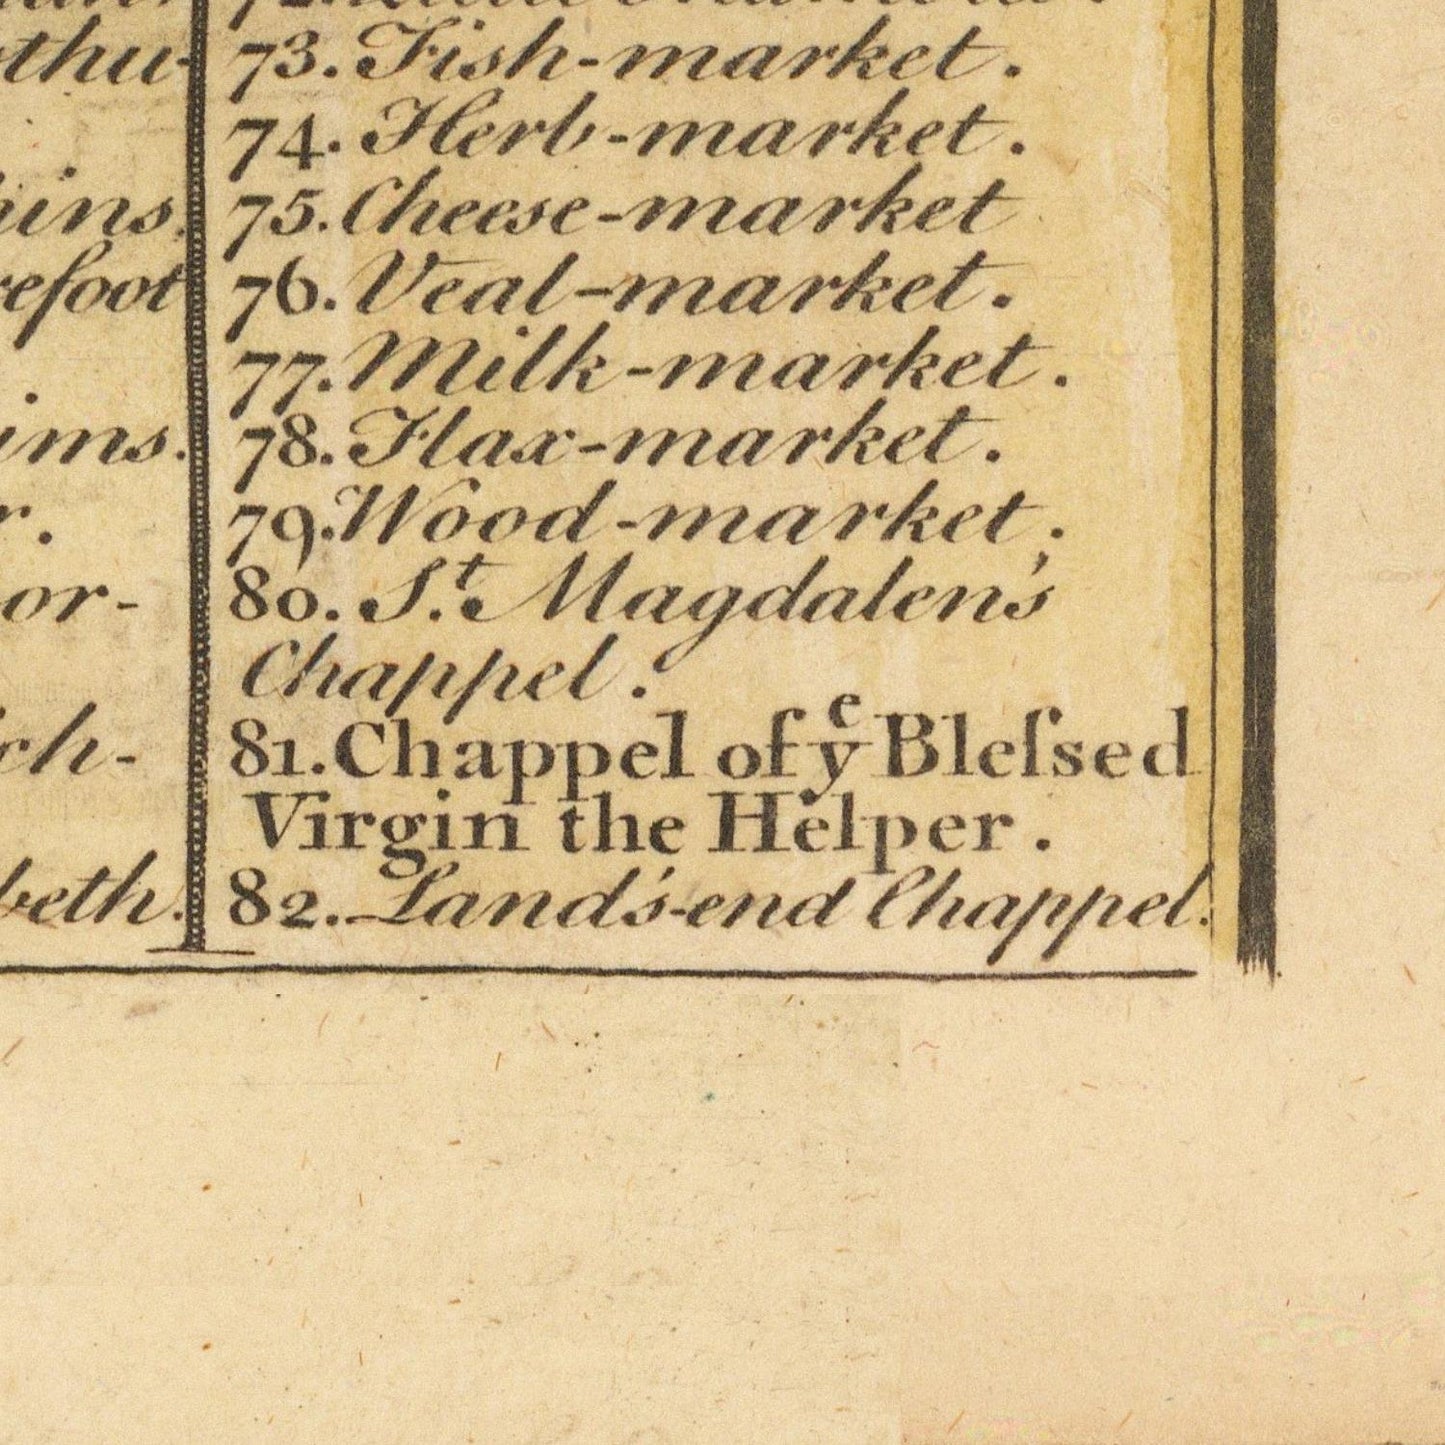 thu-
ins.
efoot
ims.
r.
or-
ich-
beth.
73. Fish-market.
74. Herb-market.
75. Cheese-market
76. Veal-market.
77. Milk-market.
78. Flax-market.
79. Wood-market.
80. S.t Magdalen's
Chappel.
81. Chappel of yͤ Bleſsed
Virgin the Helper.
82. Land's-end Chappel.